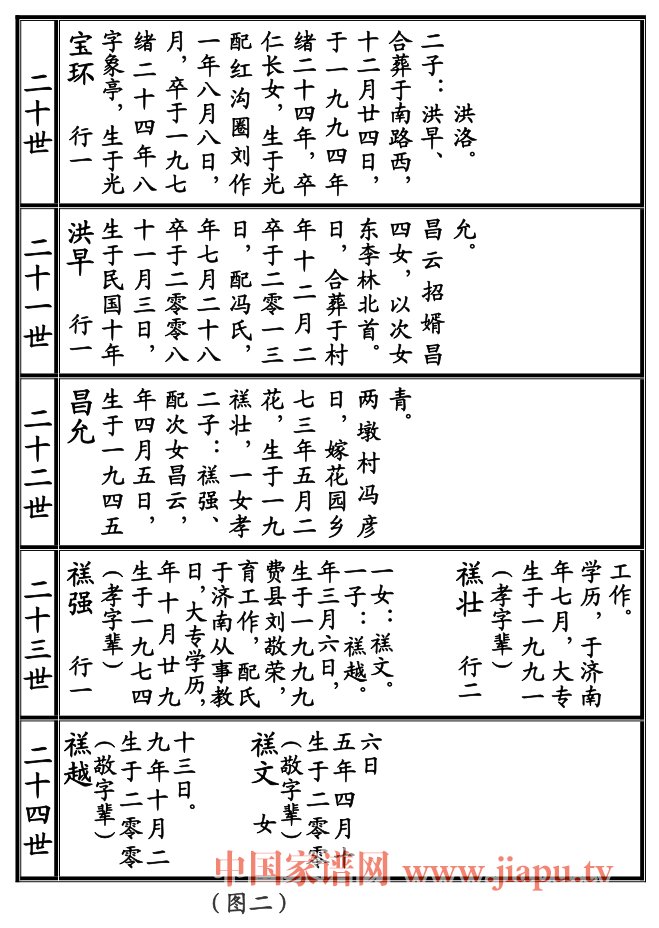 二十世
宝环 行一
字象亭，生于光
绪二十四年八
月，卒于一九七
一年八月八日，
配红沟圈刘作
仁长女，生于光
绪二十四年，卒
于一九九四年
十二月廿四日，
合葬于南路西，
二子：洪早、
洪洛。
二十一世
洪早 行一
生于民国十年
十一月三日，
卒于二零零八
年七月二十八
日，配冯氏，
卒于二零一三
年十二月二
日，合葬于村
东李林北首。
四女，以次女
昌云招婿昌
允。
二十二世
昌允
生于一九四五
年四月五日，
配次女昌云，
二子：禚强、
禚壮，一女孝
花，生于一九
七三年五月二
日，嫁花园乡
两墩村冯彦
青。
二十三世
禚强 行一
（孝字辈）
生于一九七四
年十月廿九
日，大专学历，
于济南从事教
育工作，配氏
费县刘敬荣，
生于一九九九
年三月六日，
一子：禚越。
一女：禚文。
禚壮 行二
（孝字辈）
生于一九九一
年七月，大专
学历，于济南
工作。
二十四世
禚越
（敬字辈）
生于二零零
九年十月二
十三日。
禚文 女
（敬字辈）
生于二零零
五年四月十
六日
中国家谱网 www.jiapu.tv
（图二）